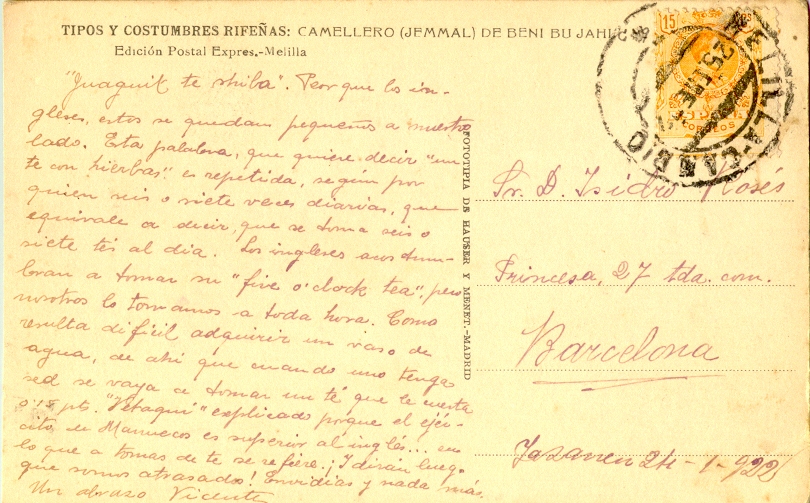 TIPOS Y COSTUMBRES RIFEÑAS: CAMELLERO (JEMMAL) DE BENI BU JAHI
Edición Postal Expres.-Melilla
"Juaguil te shiba". Peor que los in-
gleses, estos se quedan pequeños a nuestro
lado. Esta palabra, que quiere decir "un
te con hierbas" es repetida, según por
quien seis o siete veces diarias, que
equivale a decir, que se toma seis o
siete tés al dia. Los ingleses acostum-
bran a tomar su "five o'clock tea", pero
nosotros lo tomamos a toda hora. Como
resulta dificil adquirir un vaso de
agua, de ahi que cuando uno tenga
sed se vaya a tomar un té que le cuesta
0'15 pts. "Vetaqui" explicado porque el ejér-
cito de Marruecos es superior al inglés... en
lo que a tomas de te se refiere. ¡Y dirán luego
que somos atrasados! Envidias y nada más.
Un abrazo Vicente
FOTOTIPIA DE HAUSER Y MENET.-MADRID
15
CORREOS
MELILLA-CAMBIO
25 ENE
Sr. D. Isidro Rosés
Princesa, 27 tda. com.
Barcelona
24-1-922